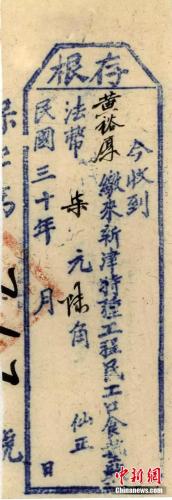 存根
今收到
黃裕厚繳來新津特種工程民工口食
法幣柒元陸角仙正
民國三十年 月 日
號
中新网
Chinanews.com